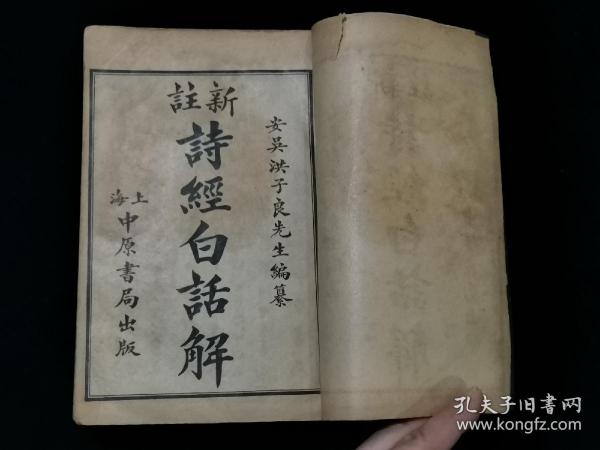 安吳洪子良先生編纂
新註
詩經白話解
上海
中原書局出版
孔夫子旧書网
www.kongfz.com